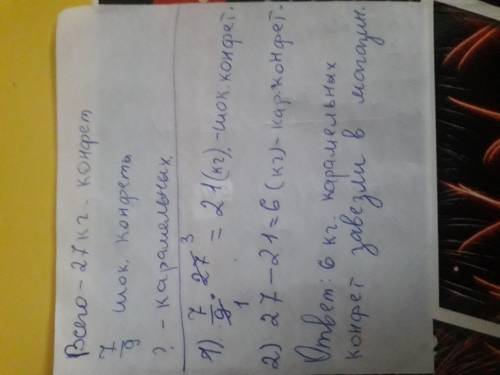 Всего - 27 кг. конфет
7/9 шок. конфеты
? - карамельных.
1) 7/9 · 27 3 1 = 21 (кг). - шок. конфет.
2) 27 - 21 = 6 (кг) - кар. конфет.
Ответ: 6 кг. карамельных
конфет завезли в магазин.